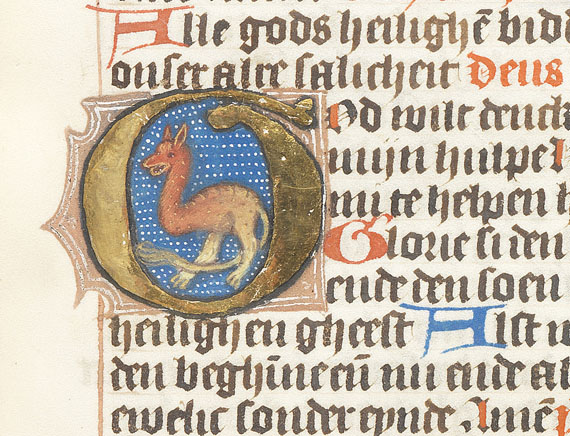 Alle gods heilighē bidd
onser alre salicheit Deus
God wilt denck
mijn hulpe
mi te helpen h
Glorie si den
ende den soen
heilighen gheest Alst w
den beghīne eñ nu ende al
ewelic sonder eynde Amē